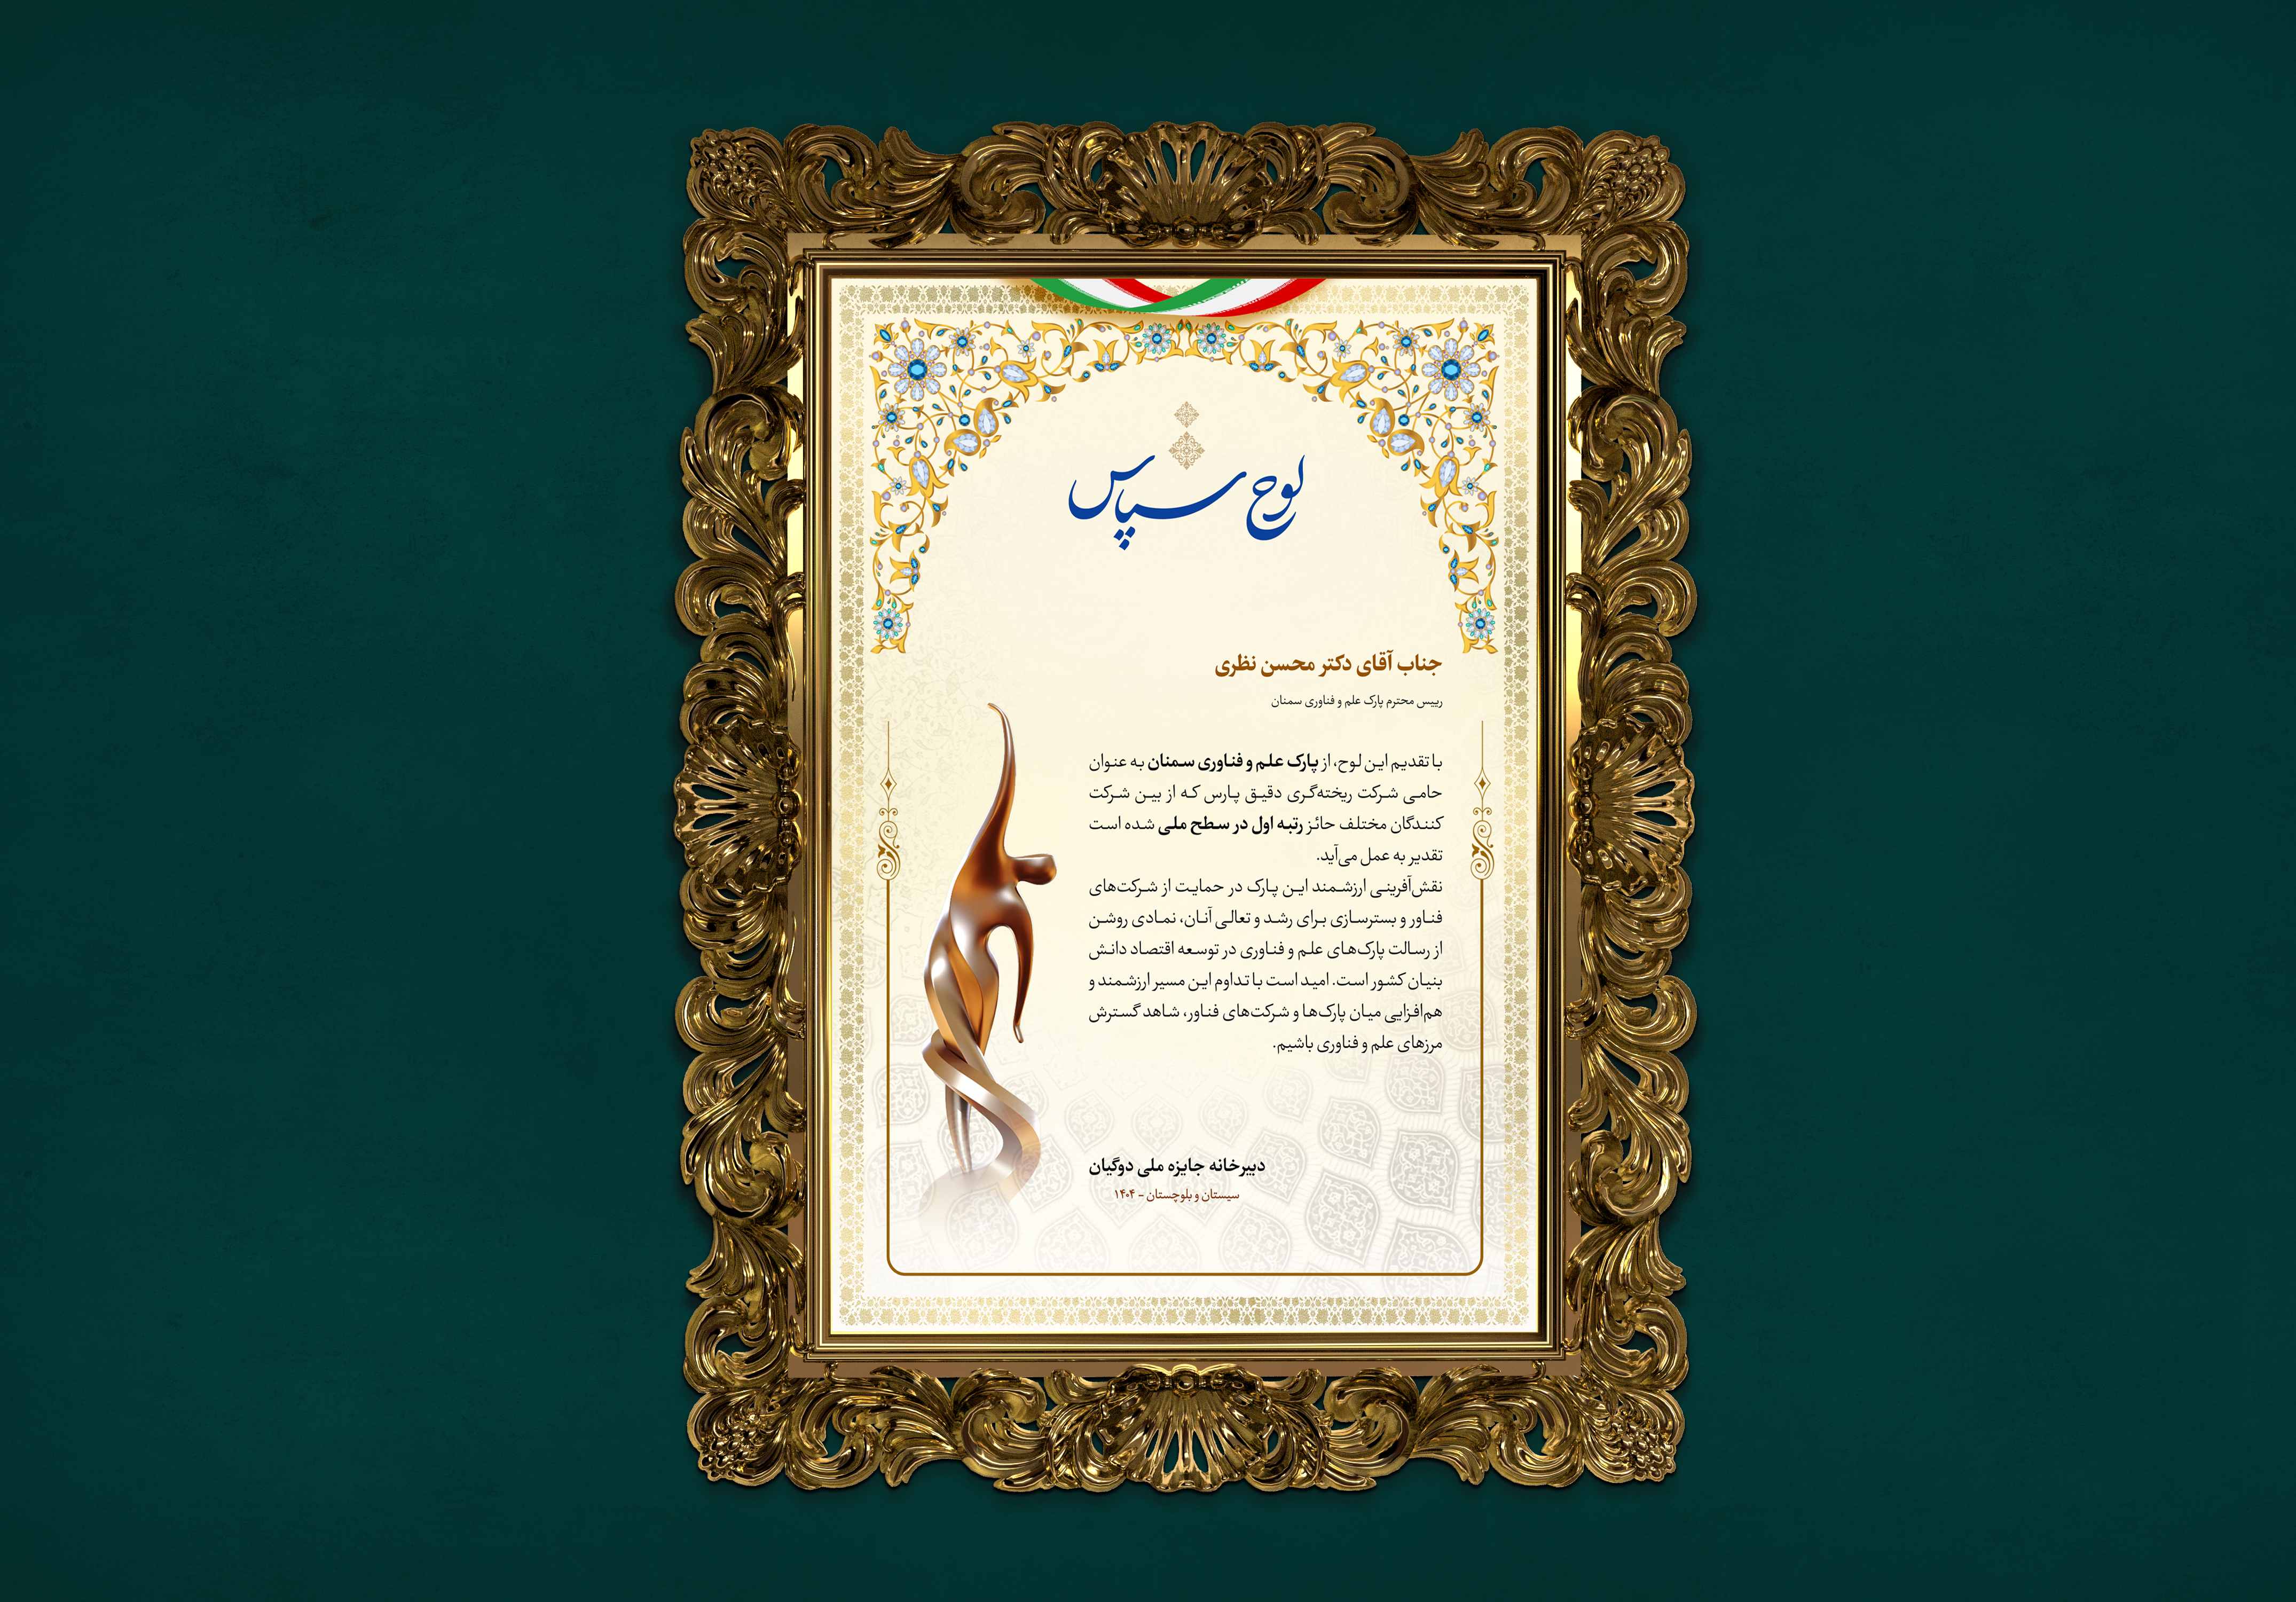 لوح سپاس
جناب آقای دکتر محسن نظری
رییس محترم پارک علم و فناوری سمنان
با تقدیم این لوح، از پارک علم و فناوری سمنان به عنوان
حامی شرکت ریخته‌گری دقیق پارس که از بین شرکت
کنندگان مختلف حائز رتبه اول در سطح ملی شده است
تقدیر به عمل می‌آید.
نقش‌آفرینی ارزشمند این پارک در حمایت از شرکت‌های
فناور و بسترسازی برای رشد و تعالی آنان، نمادی روشن
از رسالت پارک‌های علم و فناوری در توسعه اقتصاد دانش
بنیان کشور است. امید است با تداوم این مسیر ارزشمند و
هم‌افزایی میان پارک‌ها و شرکت‌های فناور، شاهد گسترش
مرزهای علم و فناوری باشیم.
دبیرخانه جایزه ملی دوگیان
سیستان و بلوچستان - ۱۴۰۴